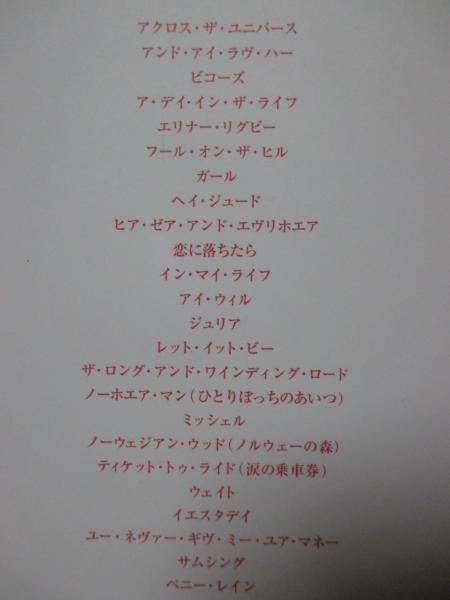 アクロス・ザ・ユニバース
アンド・アイ・ラヴ・ハー
ビコーズ
ア・デイ・イン・ザ・ライフ
エリナー・リグビー
フール・オン・ザ・ヒル
ガール
ヘイ・ジュード
ヒア・ゼア・アンド・エヴリホエア
恋に落ちたら
イン・マイ・ライフ
アイ・ウィル
ジュリア
レット・イット・ビー
ザ・ロング・アンド・ワインディング・ロード
ノーホエア・マン(ひとりぼっちのあいつ)
ミッシェル
ノーウェジアン・ウッド(ノルウェーの森)
ティケット・トゥ・ライド(涙の乗車券)
ウェイト
イエスタデイ
ユー・ネヴァー・ギヴ・ミー・ユア・マネー
サムシング
ペニー・レイン